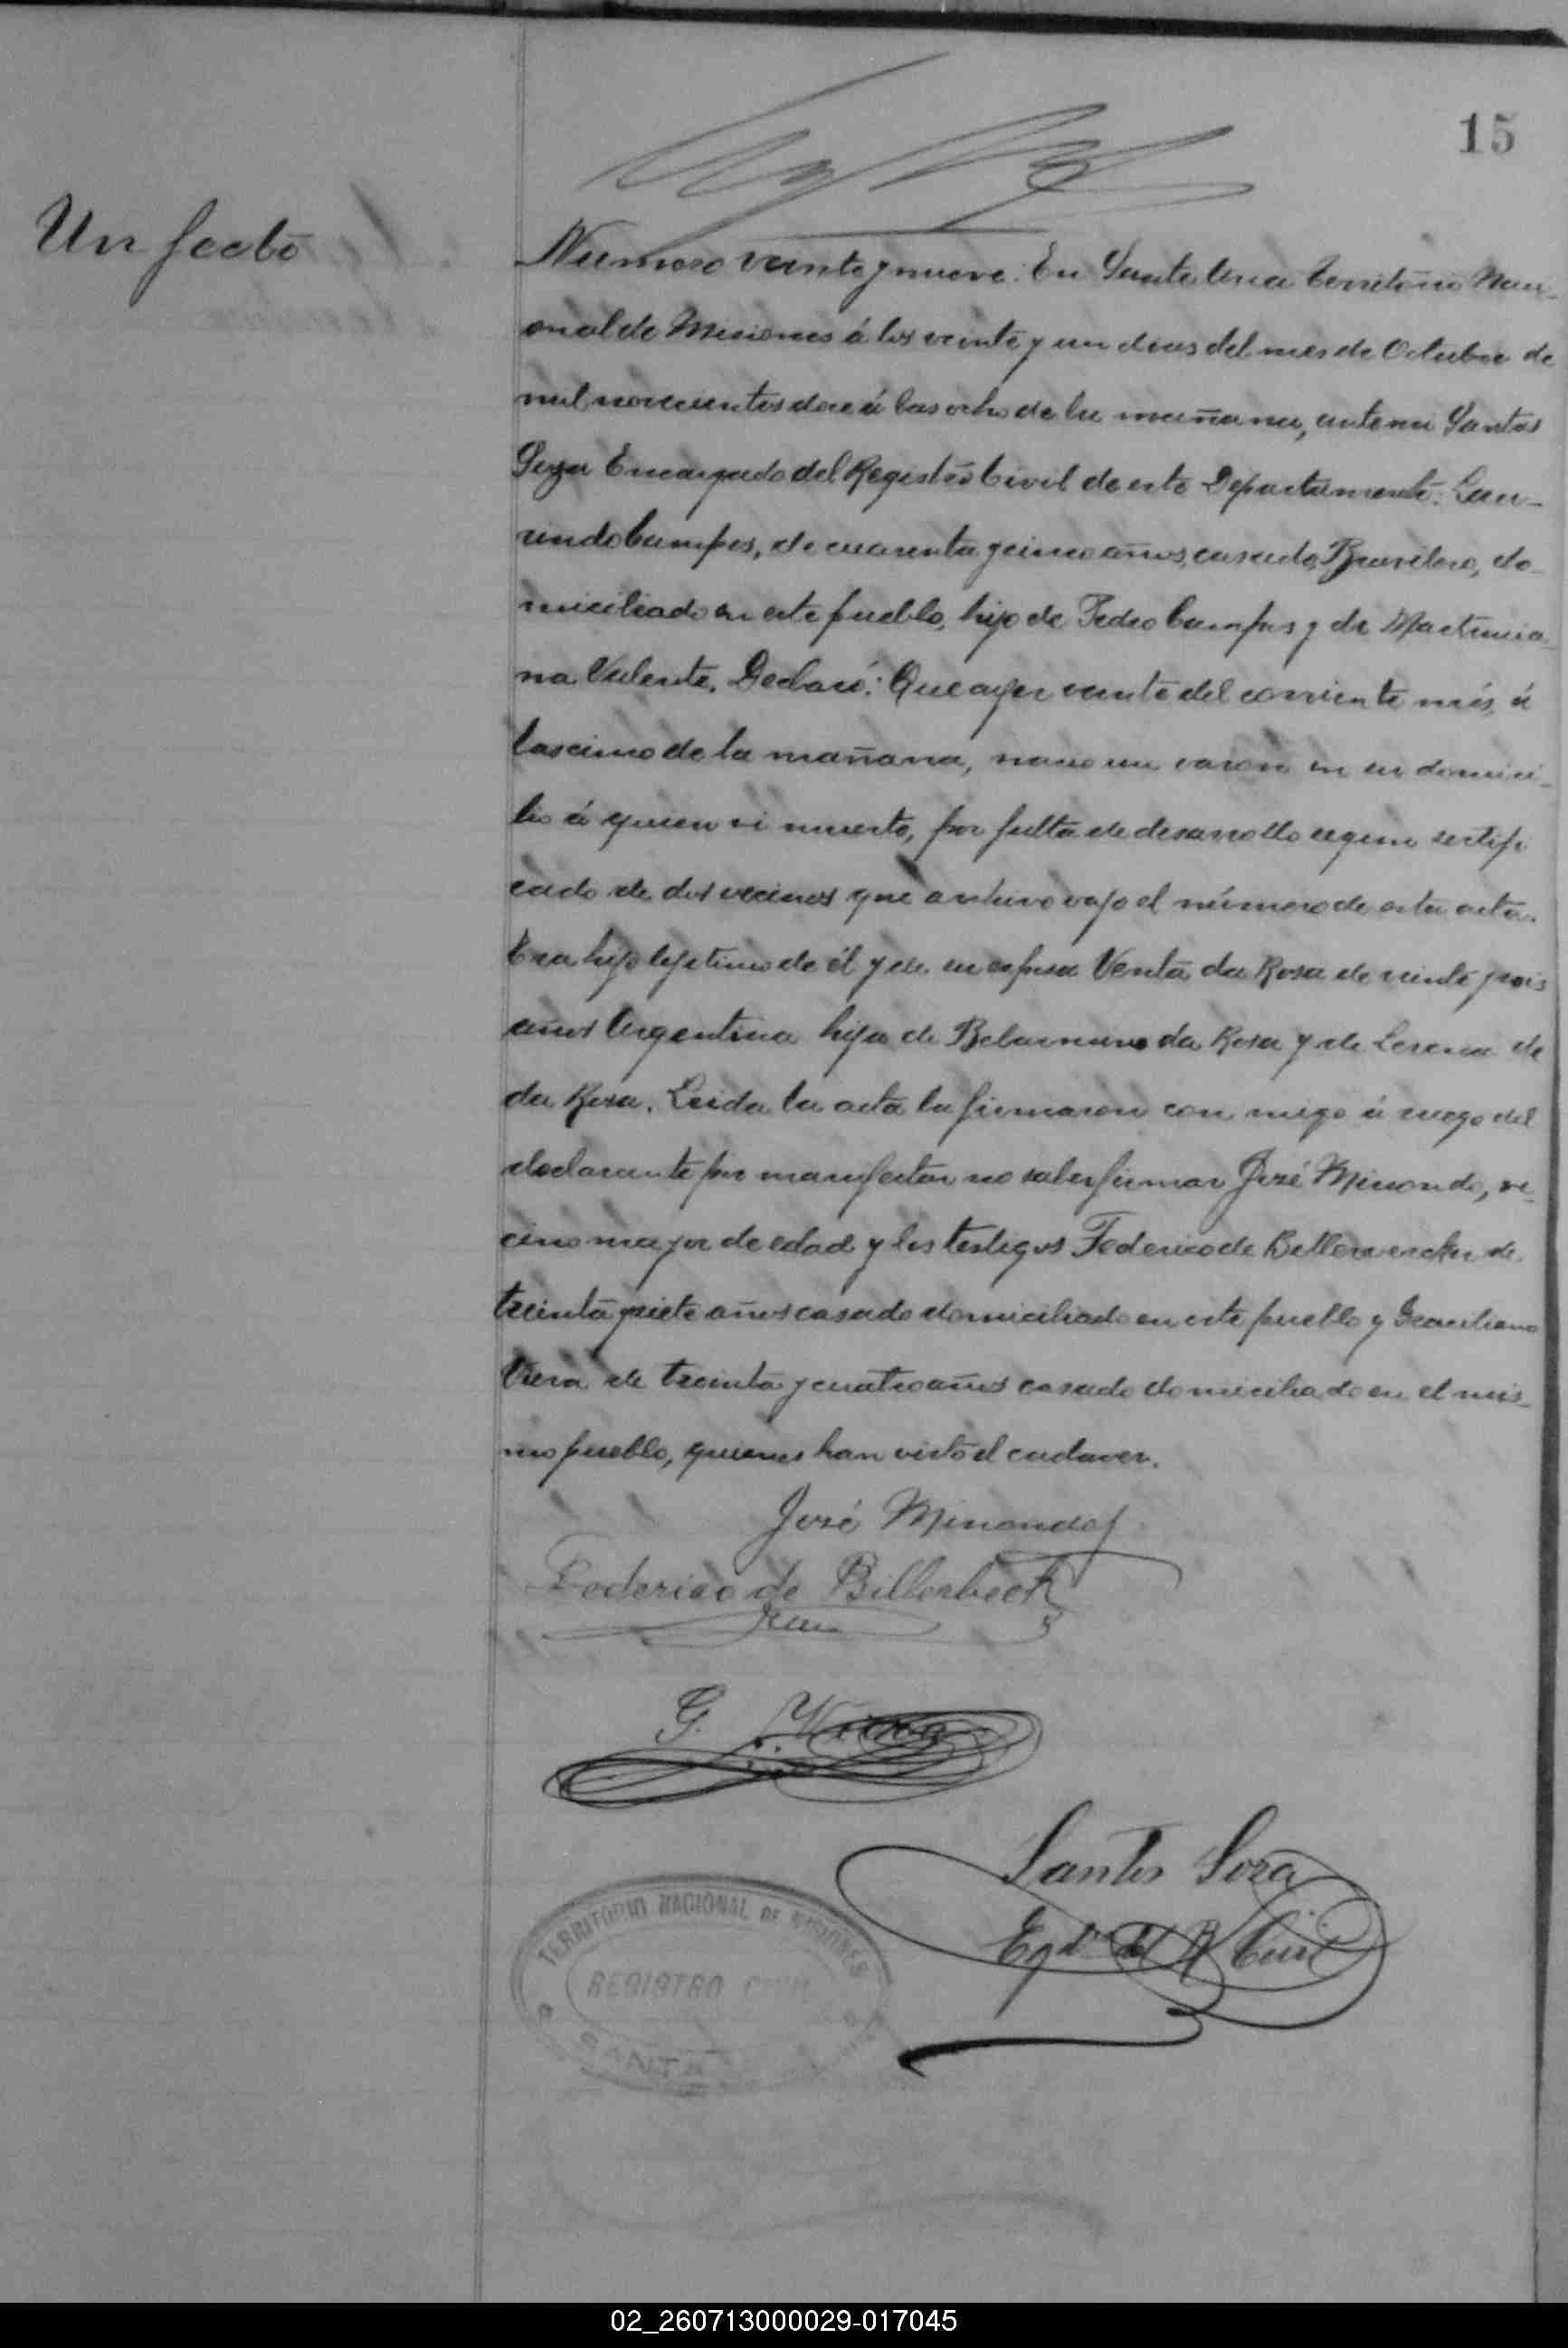 15
Un fecto
Numero veinte y nueve. En Santa Ana Territorio Naci-
onal de Misiones á los veinte y un dias del mes de Octubre de
mil novecientos doce á las ocho de la mañana, ante mi Santos
Soza Encargado del Registro Civil de este Departamento: Lau-
rindo Campos, de cuarenta y cinco años, casado, Brasilero, do-
miciliado en este pueblo, hijo de Pedro Campos y de Martinia-
na Valente. Declaró: Que ayer veinte del corriente més, á
las cinco de la mañana, nacio un varon en su domici-
lio á quien vi muerto, por falta de desarrollo segun sertifi
cado de dos vecinos que archivo vajo el número de esta acta.
Era hijo lejitimo de él y de su esposa Venta da Rosa de veinte y seis
años Argentina hija de Belarmino da Rosa y de Lorena de
da Rosa. Leida la acta la firmaron con migo á ruego del
declarante por manifestar no saber firmar José Minondo, ve-
cino mayor de edad y los testigos Federico de de
treinta y siete años casado domiciliado en este pueblo y Graciliano
Viera de treinta y cuatro años casado domiciliado en el mis-
mo pueblo, quienes han visto el cadaver.
José Minondo
Federico de Billerbeck
G. Viera
Santos Soza
Egdo del R Civil
TERRITORIO NACIONAL DE MISIONES
REGISTRO CIVIL
SANTA
02_260713000029-017045